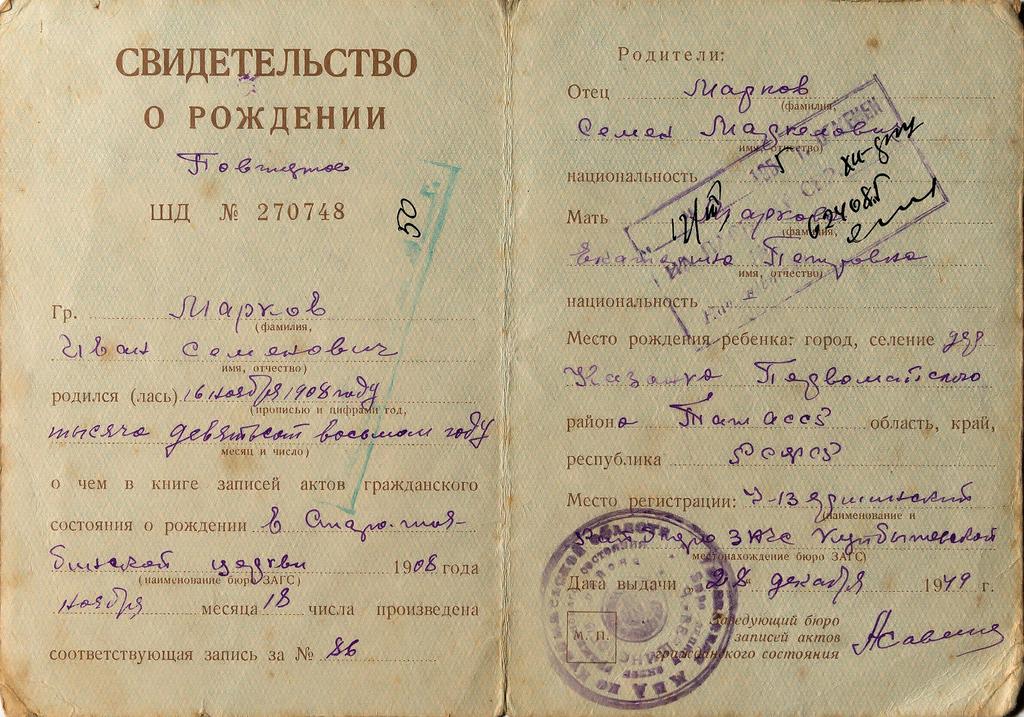 СВИДЕТЕЛЬСТВО
О РОЖДЕНИИ
Повторное
ШД № 270748
50
Гр. Марков
(фамилия,
Иван Семенович
имя, отчество)
родился (лась) 16 ноября 1908 году
(прописью и цифрами год,
тысяча девятьсот восьмом году
месяц и число)
о чем в книге записей актов гражданского
состояния о рождении в
церкви 1908 года
(наименование бюро ЗАГС)
ноября месяца 18 числа произведена
соответствующая запись за № 86
Родители:
Отец Марков
(фамилия,
Семен
имя, отчество)
национальность
Мать Маркова
(фамилия,
Екатерина Петровна
имя, отчество)
национальность
Место рождения ребенка: город, селение дер
Казанка Первомайского
района ТатАССР область, край,
республика РСФСР
Место регистрации:
(наименование и
бюро ЗАГС Куйбышевской
местонахождение бюро ЗАГС)
Дата выдачи 28 декабря 1949 г.
М. П.
Заведующий бюро
записей актов
гражданского состояния